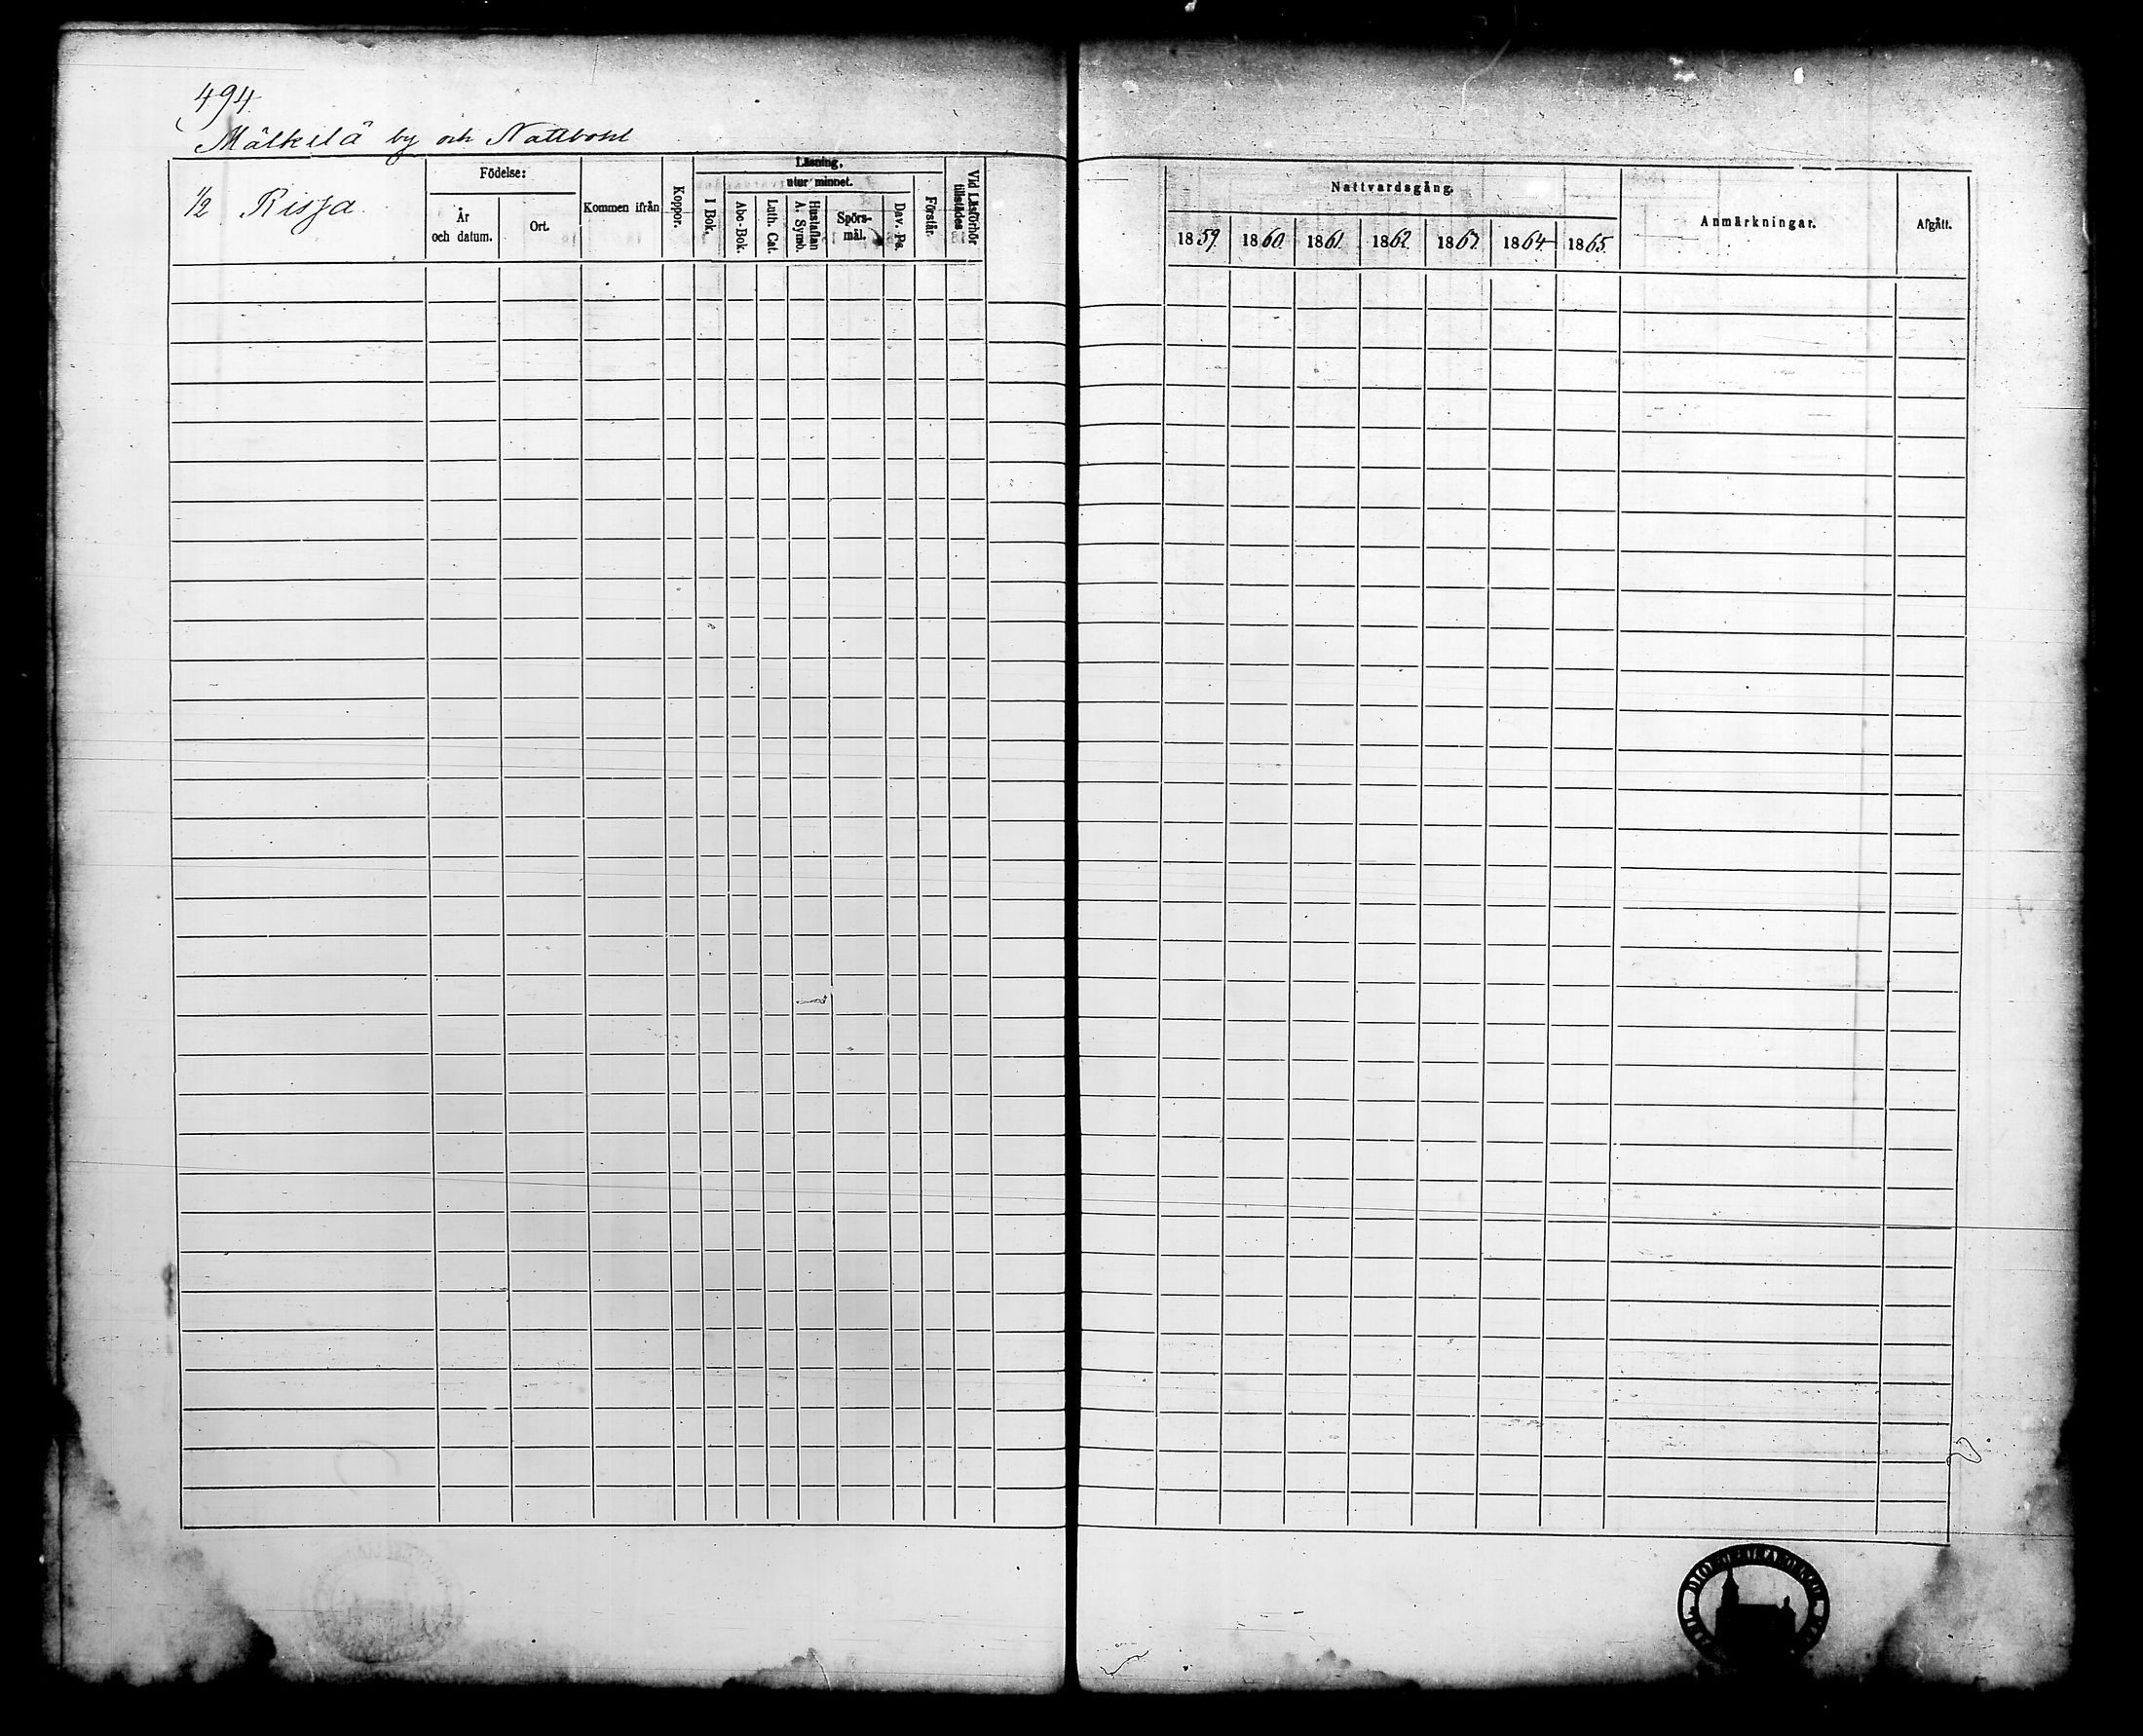 494.
Mälkilä by och Nattbohl
1/2 Risja
Födelse:
År
och datum.
Ort.
Kommen ifrån
Koppor.
Läsning,
utur minnet.
I Bok.
Abc-Bok.
Luth. Cat.
Hustaflan
A. Symb.
Spörs-
mål.
Dav. Ps.
Förstår.
Vid Läsförhör
tillstädes
Nattvardsgång.
1859. 1860. 1861. 1862. 1863. 1864 1865.
Anmärkningar.
Afgått.